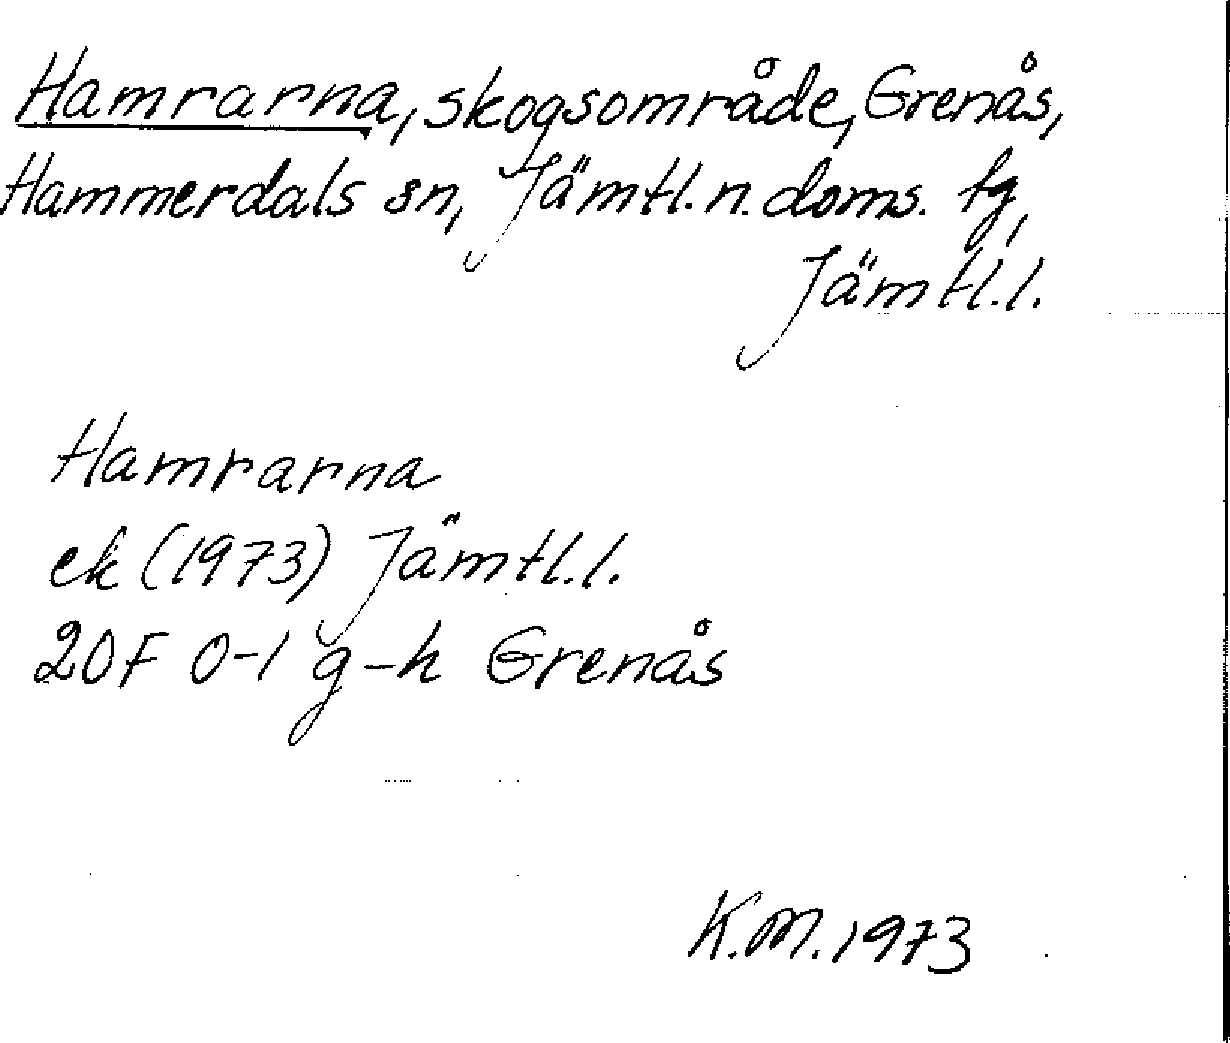 Hamrarna, skogsområde, Grenås,
Hammerdals sn, Jämtl. n. doms. tg,
Jämtl. l.
Hamrarna
ek (1973) Jämtl. l.
20F 0-1 g-h Grenås
K.M. 1973